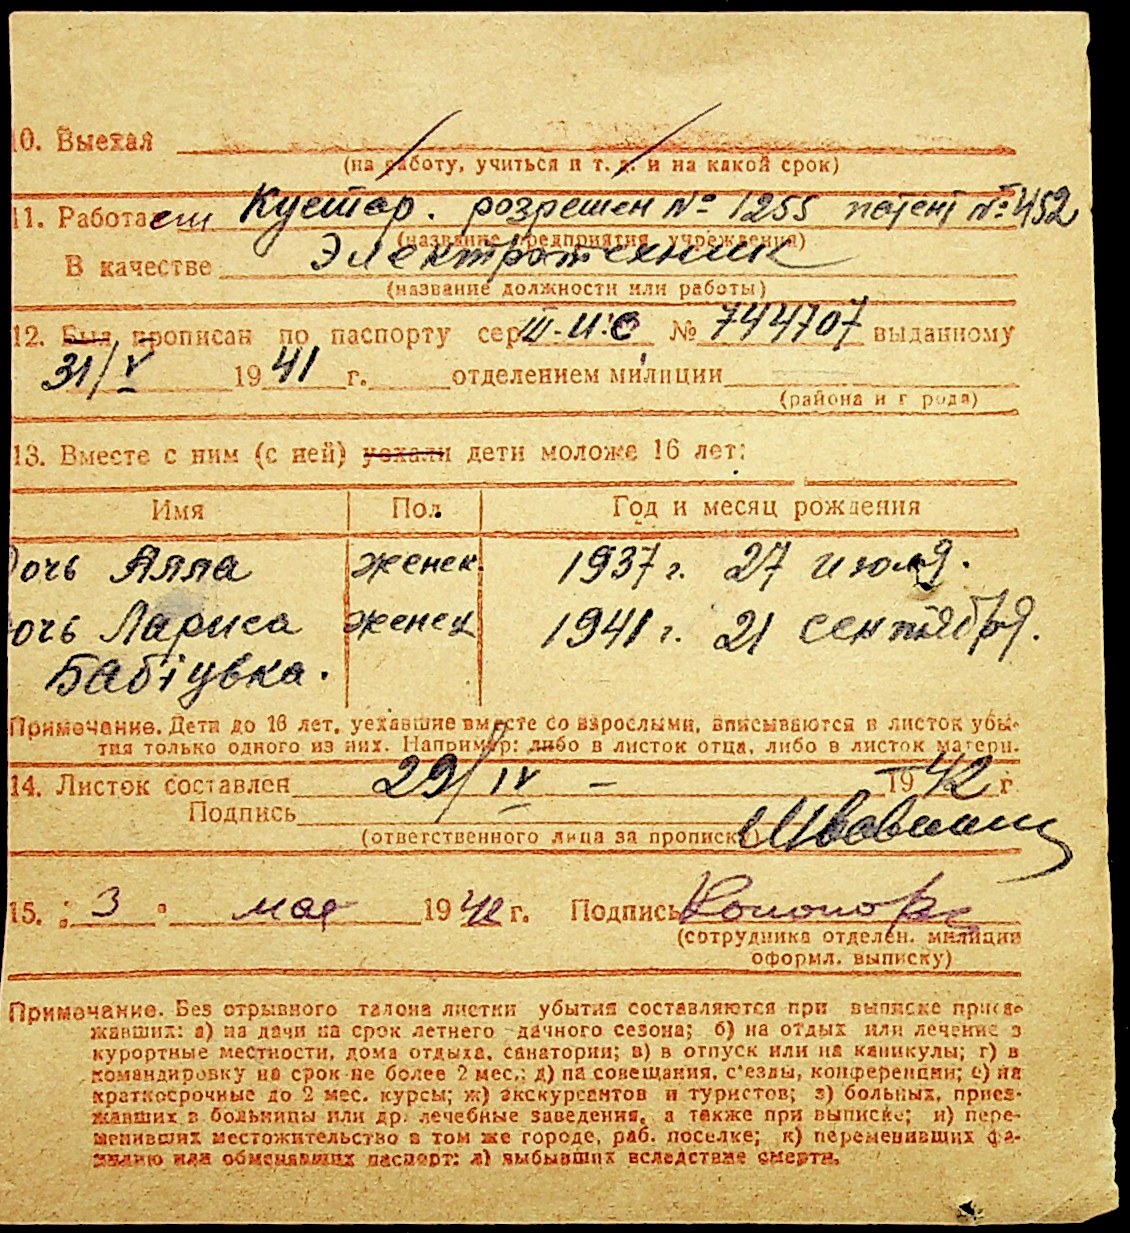 10. Выехал
(на работу, учиться и т. д. и на какой срок)
11. Работает Кустар. розрешен № 1255 патент № 452
(название предприятия, учреждения)
В качестве Электротехник
(название должности или работы)
12. Был прописан по паспорту сер. III-ИС № 744707 выданному
31/V 1941 г. отделением милиции
(района и города)
13. Вместе с ним (с ней) уехали дети моложе 16 лет:
Имя Пол Год и месяц рождения
дочь Алла женск. 1937 г. 27 июля.
дочь Лариса женск 1941 г. 21 сентября.
Примечание. Дети до 16 лет, уехавшие вместе со взрослыми, вписываются в листок убы-
тия только одного из них. Например: либо в листок отца, либо в листок матери.
14. Листок составлен 29/IV – 1942 г
Подпись
(ответственного лица за прописку)
15. „3" мая 1942 г. Подпись
(сотрудника отделен. милиции
оформл. выписку)
Примечание. Без отрывного талона листки убытия составляются при выписке приез-
жавших: а) на дачи на срок летнего дачного сезона; б) на отдых или лечение в
курортные местности, дома отдыха, санатории; в) в отпуск или на каникулы; г) в
командировку на срок не более 2 мес.; д) на совещания, с'езды, конференции; е) на
краткосрочные до 2 мес. курсы; ж) экскурсантов и туристов; з) больных, приез-
жавших в больницы или др. лечебные заведения, а также при выписке; и) пере-
менивших местожительство в том же городе, раб. поселке; к) переменивших фа-
милию или обменявших паспорт; л) выбывших вследствие смерти.